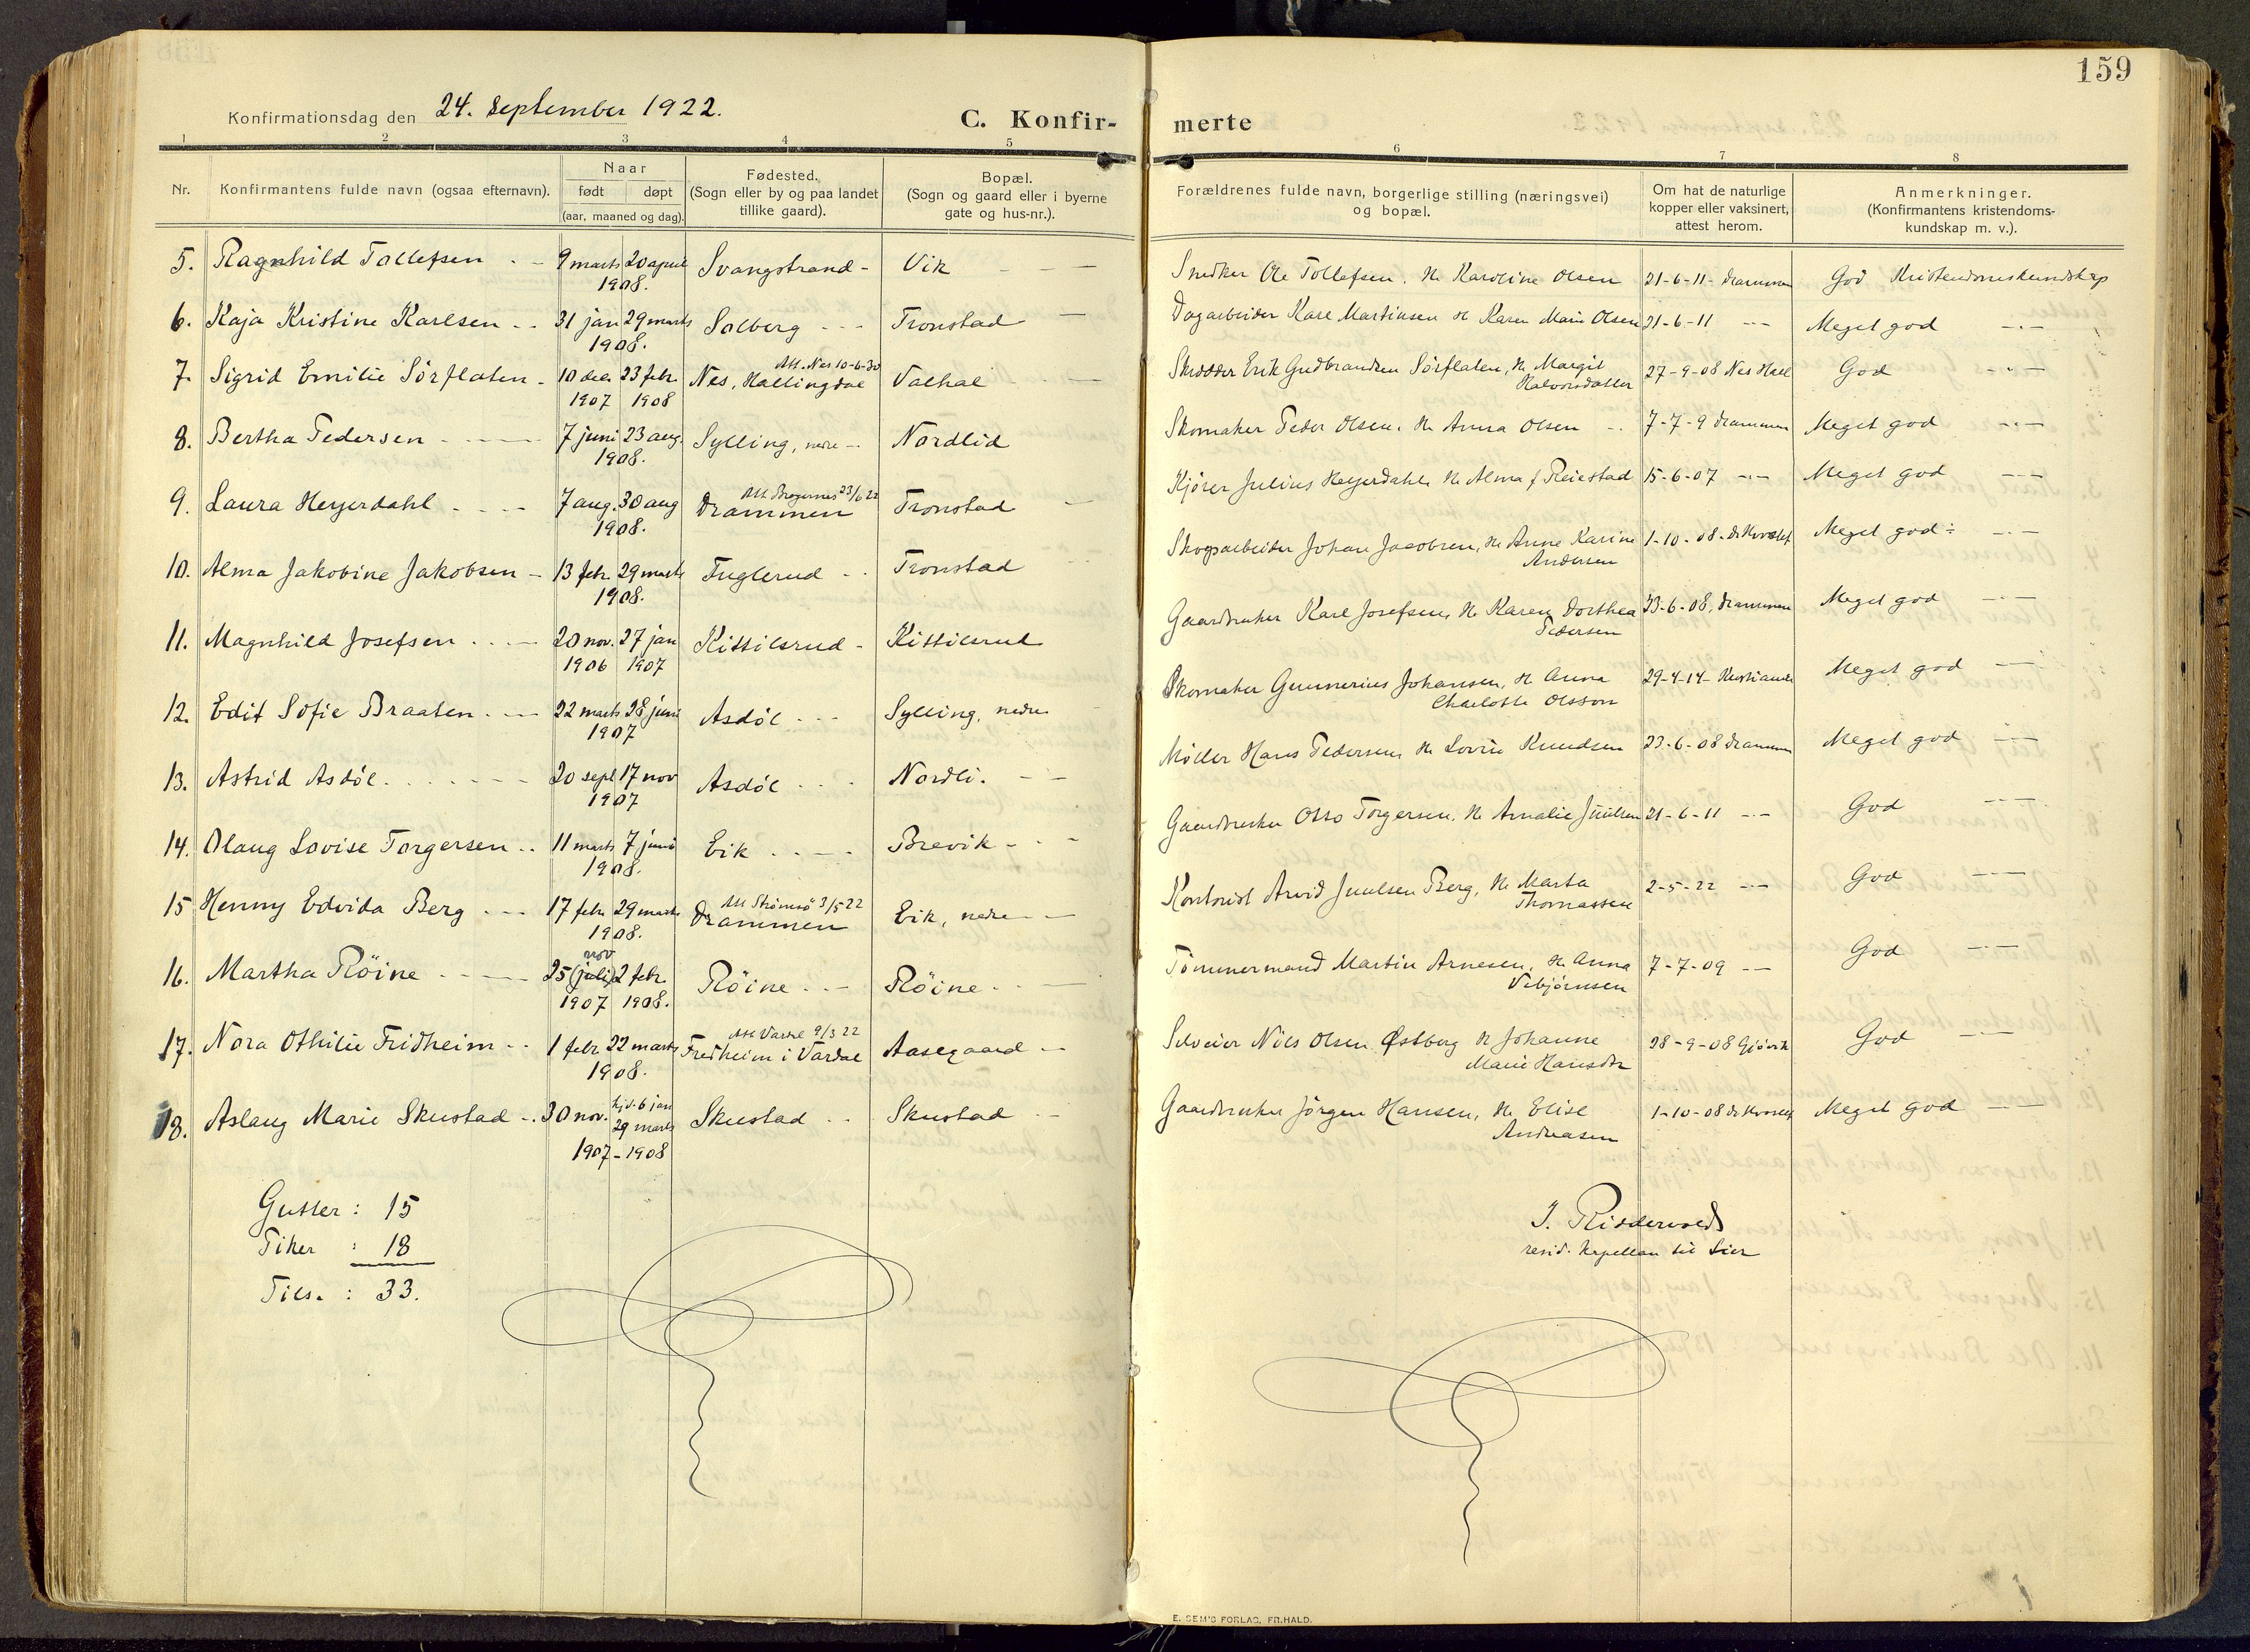 159
Konfirmationsdag den 24. September 1922.
C. Konfir- merte
1 2 3 4 5 6 7 8
Nr.
Konfirmantens fulde navn (ogsaa efternavn).
Naar
født døpt
(aar, maaned og dag).
Fødested.
(Sogn eller by og paa landet
tillike gaard).
Bopæl.
(Sogn og gaard eller i byerne
gate og hus-nr.).
Forældrenes fulde navn, borgerlige stilling (næringsvei)
og bopæl.
Om hat de naturlige
kopper eller vaksinert,
attest herom.
Anmerkninger.
(Konfirmantens kristendoms-
kundskap m. v.).
5. Ragnhild Tollefsen 9 marts 20 april Svangstrand Vik Snedker Ole Tollefsen. H. Karoline Olsen 21-6-11- Drammen God Kristendomskundskap
1908.
6. Kaja Kristine Karlsen 31 jan 29 marts Solberg Tronstad Dagarbeider Karl Martinsen H Karen Marie Olsen 21-6-11 Meget god
1908.
Att. Nes 10-6-30
7. Sigrid Emilie Sörflaten 10 dec. 23 febr. Nes, Hallingdal Valhal Skrædder Erik Gudbrandsen Sörflaten, H. Margit 27-9-08 Nes Hall God
1907 1908 Halvorsdatter
8. Bertha Pedersen 7 juni 23 aug. Sylling, nedre Nordlid Skomaker Peder Olsen. H. Anna Olsen 7-7-9 Drammen Meget god
1908.
Att Bragernes 23/6 22
9. Laura Heyerdahl 7 aug. 30 aug Drammen Tronstad Kjører Julius Heyerdahl H. Alma f Reiestad 15-6-07 Meget god
1908.
10. Alma Jakobine Jakobsen 13 febr. 29 marts Fuglerud Tronstad Skogsarbeider Johan Jacobsen, H. Anne Karine 1-10-08- Meget god
1908. Andersen
11. Magnhild Josefsen 20 nov. 27 jan Kittilsrud Kittilsrud Gaardbruker Karl Josefsen, H. Karen Dorthea 23-6-08, Drammen Meget god
1906 1907 Pedersen
12. Edit Sofie Braaten 22 marts 28 juni Asdöl Sylling, nedre Skomaker Gunnerius Johansen, H Anna 29-4-14- Meget god
1907 Charlotte Olsson
13. Astrid Asdöl 20 sept 17 nov Asdöl Nordli. Møller Hans Pedersen, H. Lovise Knudsen 23-6-08 Drammen Meget god
1907
14. Olaug Lovise Torgersen 11 marts 7 juni Eik Brevik Gaardbruker Otto Torgersen. H. Amalie Juulsen 21-6-11 God
1908.
Att Strömsö 3/5 22
15 Henny Edvida Berg 17 febr 29 marts Drammen Eik, nedre Kontorist Arvid Juulsen Berg, H. Marta 2-5-22 God
1908. Thomassen
nov
16. Martha Röine 25 (juli) 2 febr. Röine Röine Tömmermand Martin Arnesen, H. Anna 7-7-09 God
1907 1908. Vebjörnsen
Att Vardal 9/3 22
17. Nora Othilie Fridheim 1 febr 22 marts Fredheim i Vardal Aasegaard Selveier Nils Olsen Østberg H Johanne 28-9-08 Gjövik God
1908. Marie Hansdtr
hj.d. 6 jan
18. Aslaug Marie Skustad 30 nov. 29 marts Skustad Skustad Gaardbruker Jörgen Hansen, H. Elise 1-10-08 Meget god
1907 - 1908 Andreasen
Gutter: 15
Piker : 18
Tils. : 33.
J. Ridderwold
resid. kapellan til Lier
E. SEM'S FORLAG, FR.HALD.